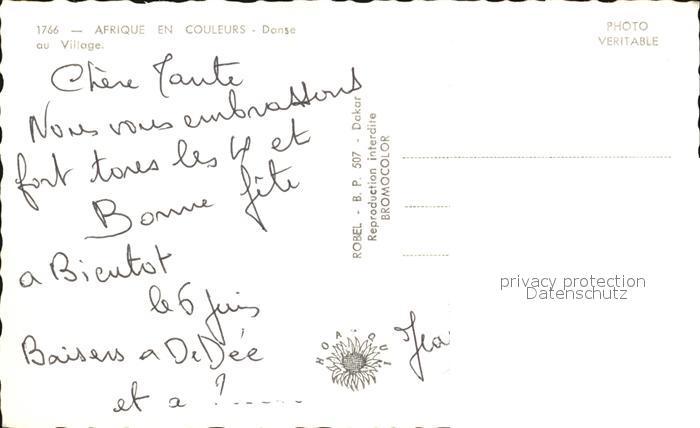 1766 — AFRIQUE EN COULEURS - Danse
au Village.
PHOTO
VERITABLE
Chère Tante
Nous vous embrassons
fort tous les 4 et
Bonne fête
a Bientot
le 6 Juin
Baisers a DeDée
et a ?------
ROBEL - B. P. 507 - Dakar
Reproduction interdite
BROMOCOLOR
HOA-QUI
privacy protection
Datenschutz
Jea